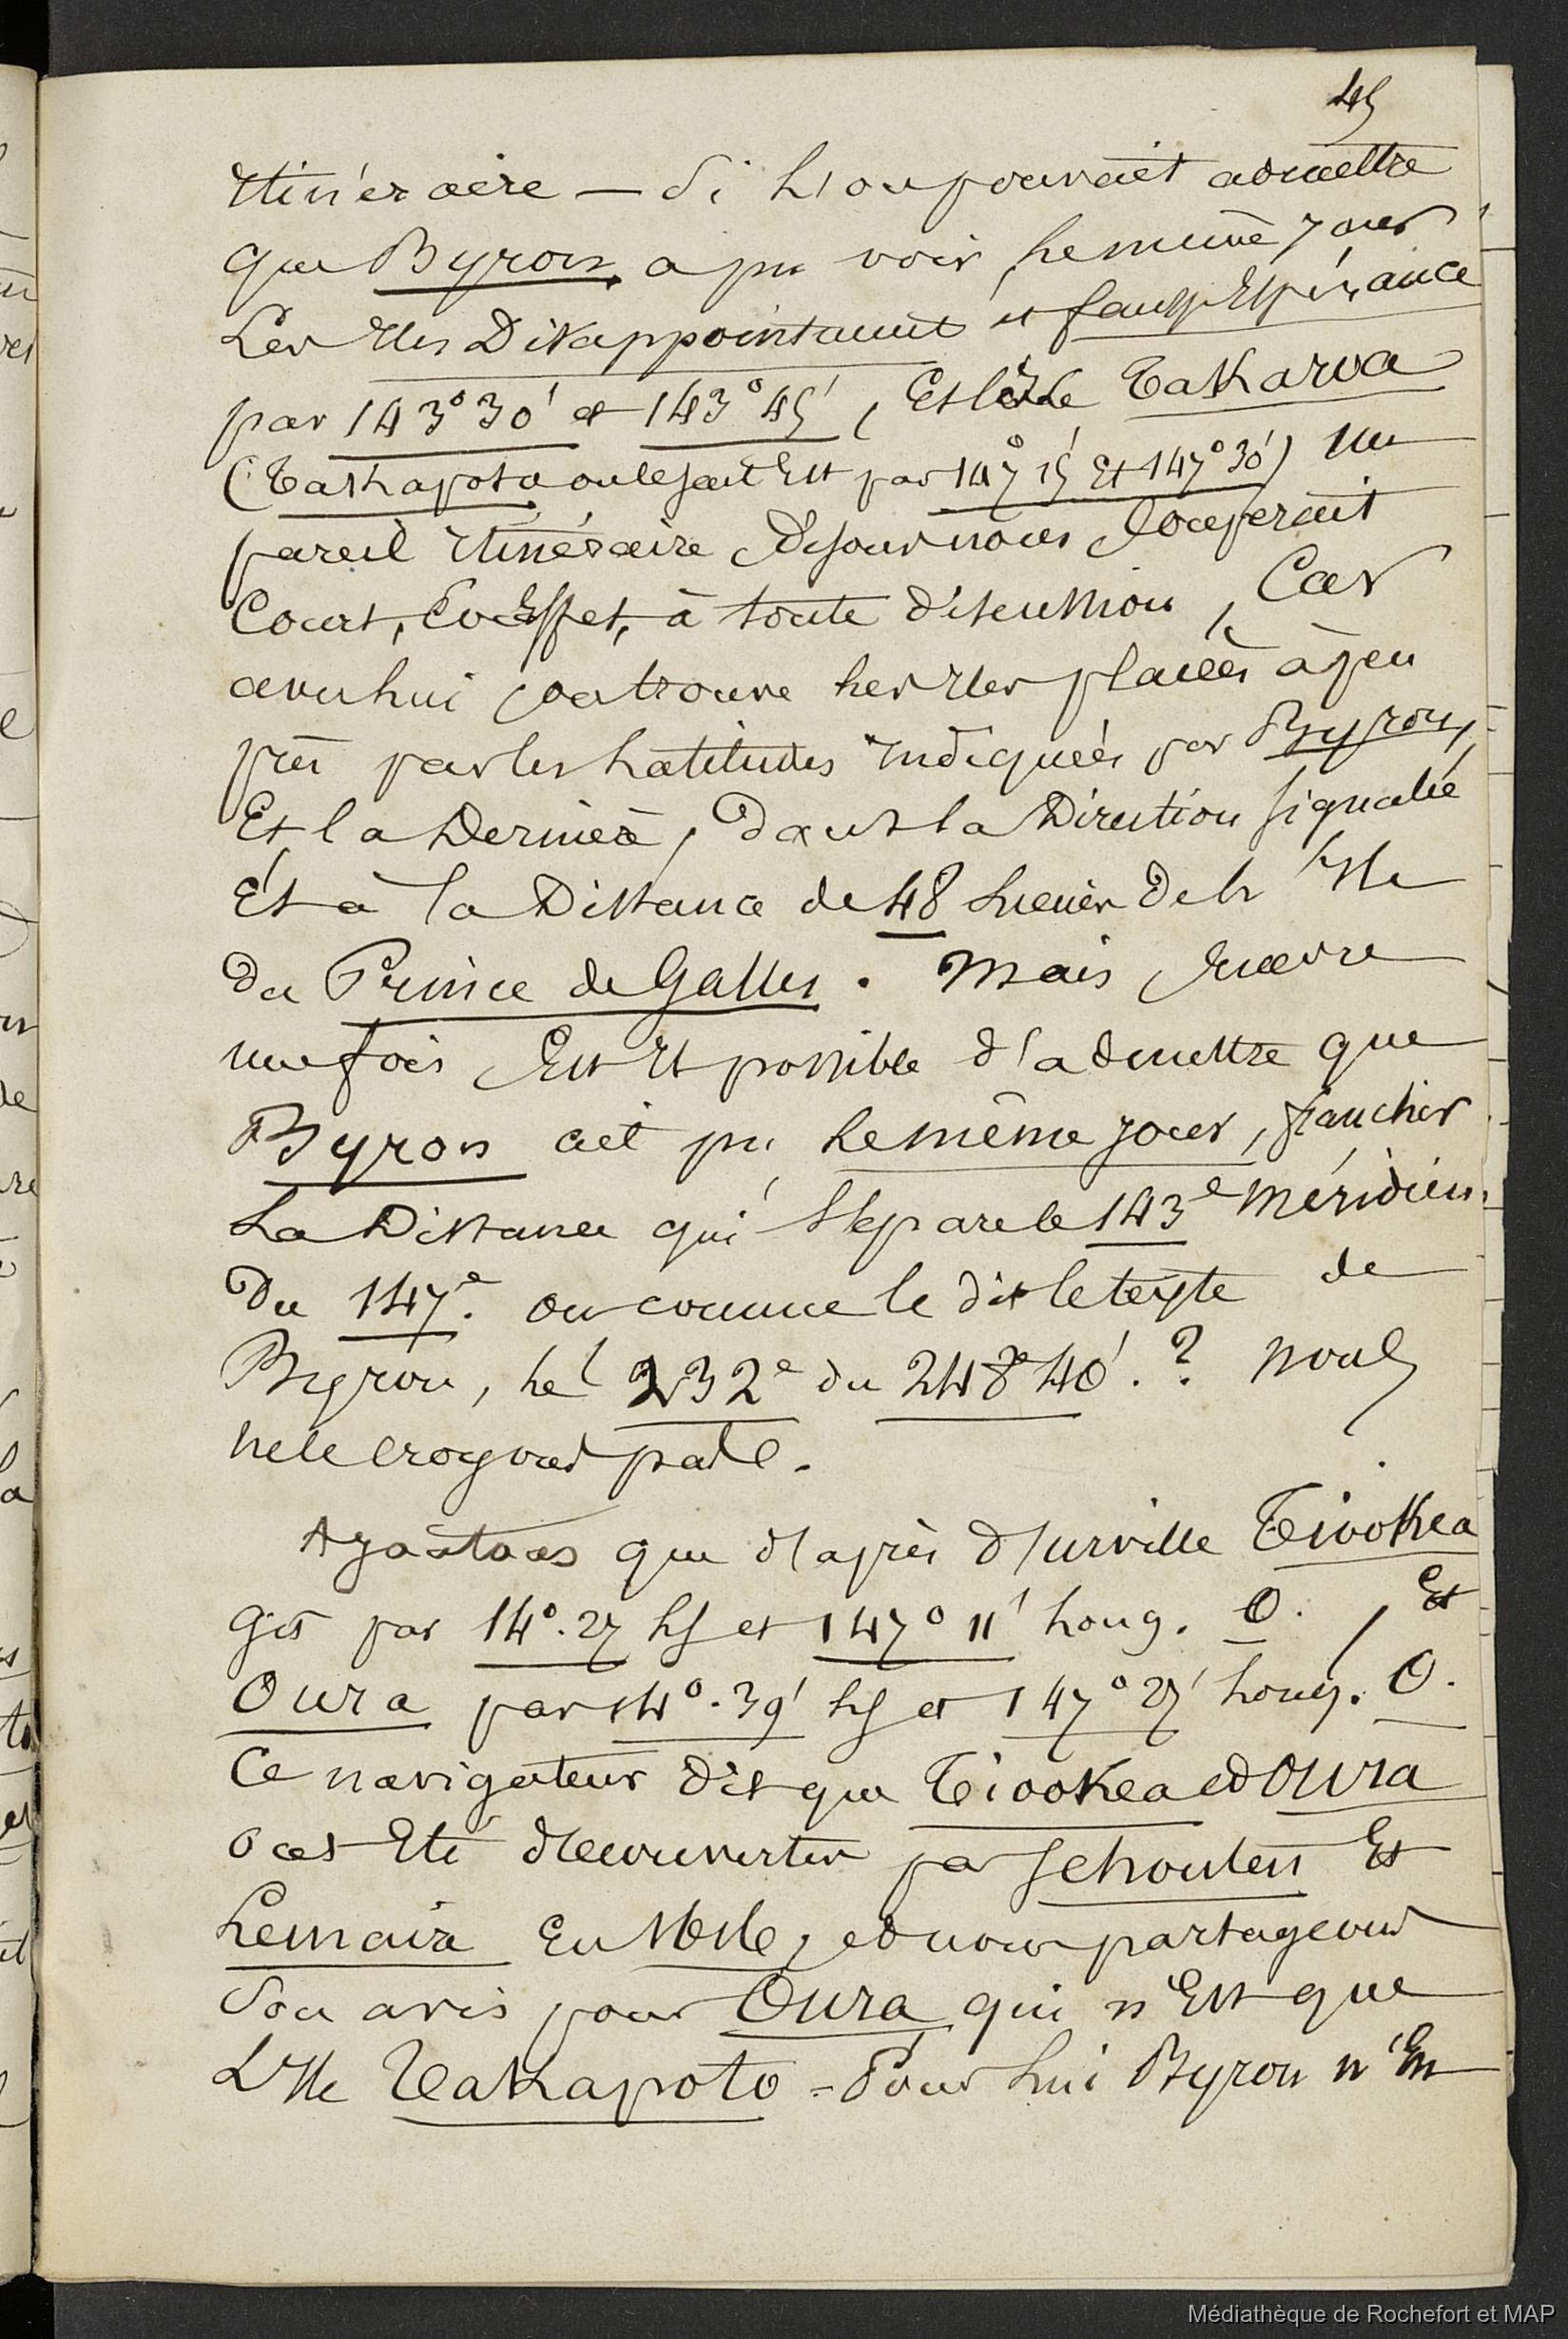 45
Itinéraire — Si l'on pouvait admettre
que Byron, a pu voir, le même jour
Les Iles Disappointment et fausse Espérance
par 143° 30' et 143° 45', Et l'Ile Takaroa
(Takapoto ou le sait Est par 147° 15 Et 147° 30') un
pareil Itinéraire Disons nous couperait
Court, En Effet, à toute discussion, Car
avec lui on trouve les Iles placées à peu
près par les Latitudes Indiquées par Byron,
Et la Dernière, Dans la Direction signalée
Et à la Distance de 48 Lieues De l'Ile
Du Prince de Galles. Mais Encore
une fois Est Il possible d'admettre que
Byron ait pu le même jour, franchir
La Distance qui Sépare le 143e Méridien
Du 147e. ou comme le dit le texte de
Byron, le 232e du 248° 40'.? Nous
ne le croyons pas.
Ajoutons que d'après d'Urville Tiookea
Gis par 14°.27 LS et 147° 11' Long. O. , Et
Oura par 14°.39' LS et 147° 27' Long. O.
Ce navigateur dit que Tiookea et Oura
ont Eté découvertes par Schouten Et
Lemaire En 1616, et nous partageons
Son avis pour Oura qui n'Est que
L'Ile Takapoto - Pour Lui Byron n'En
Médiathèque de Rochefort et MAP